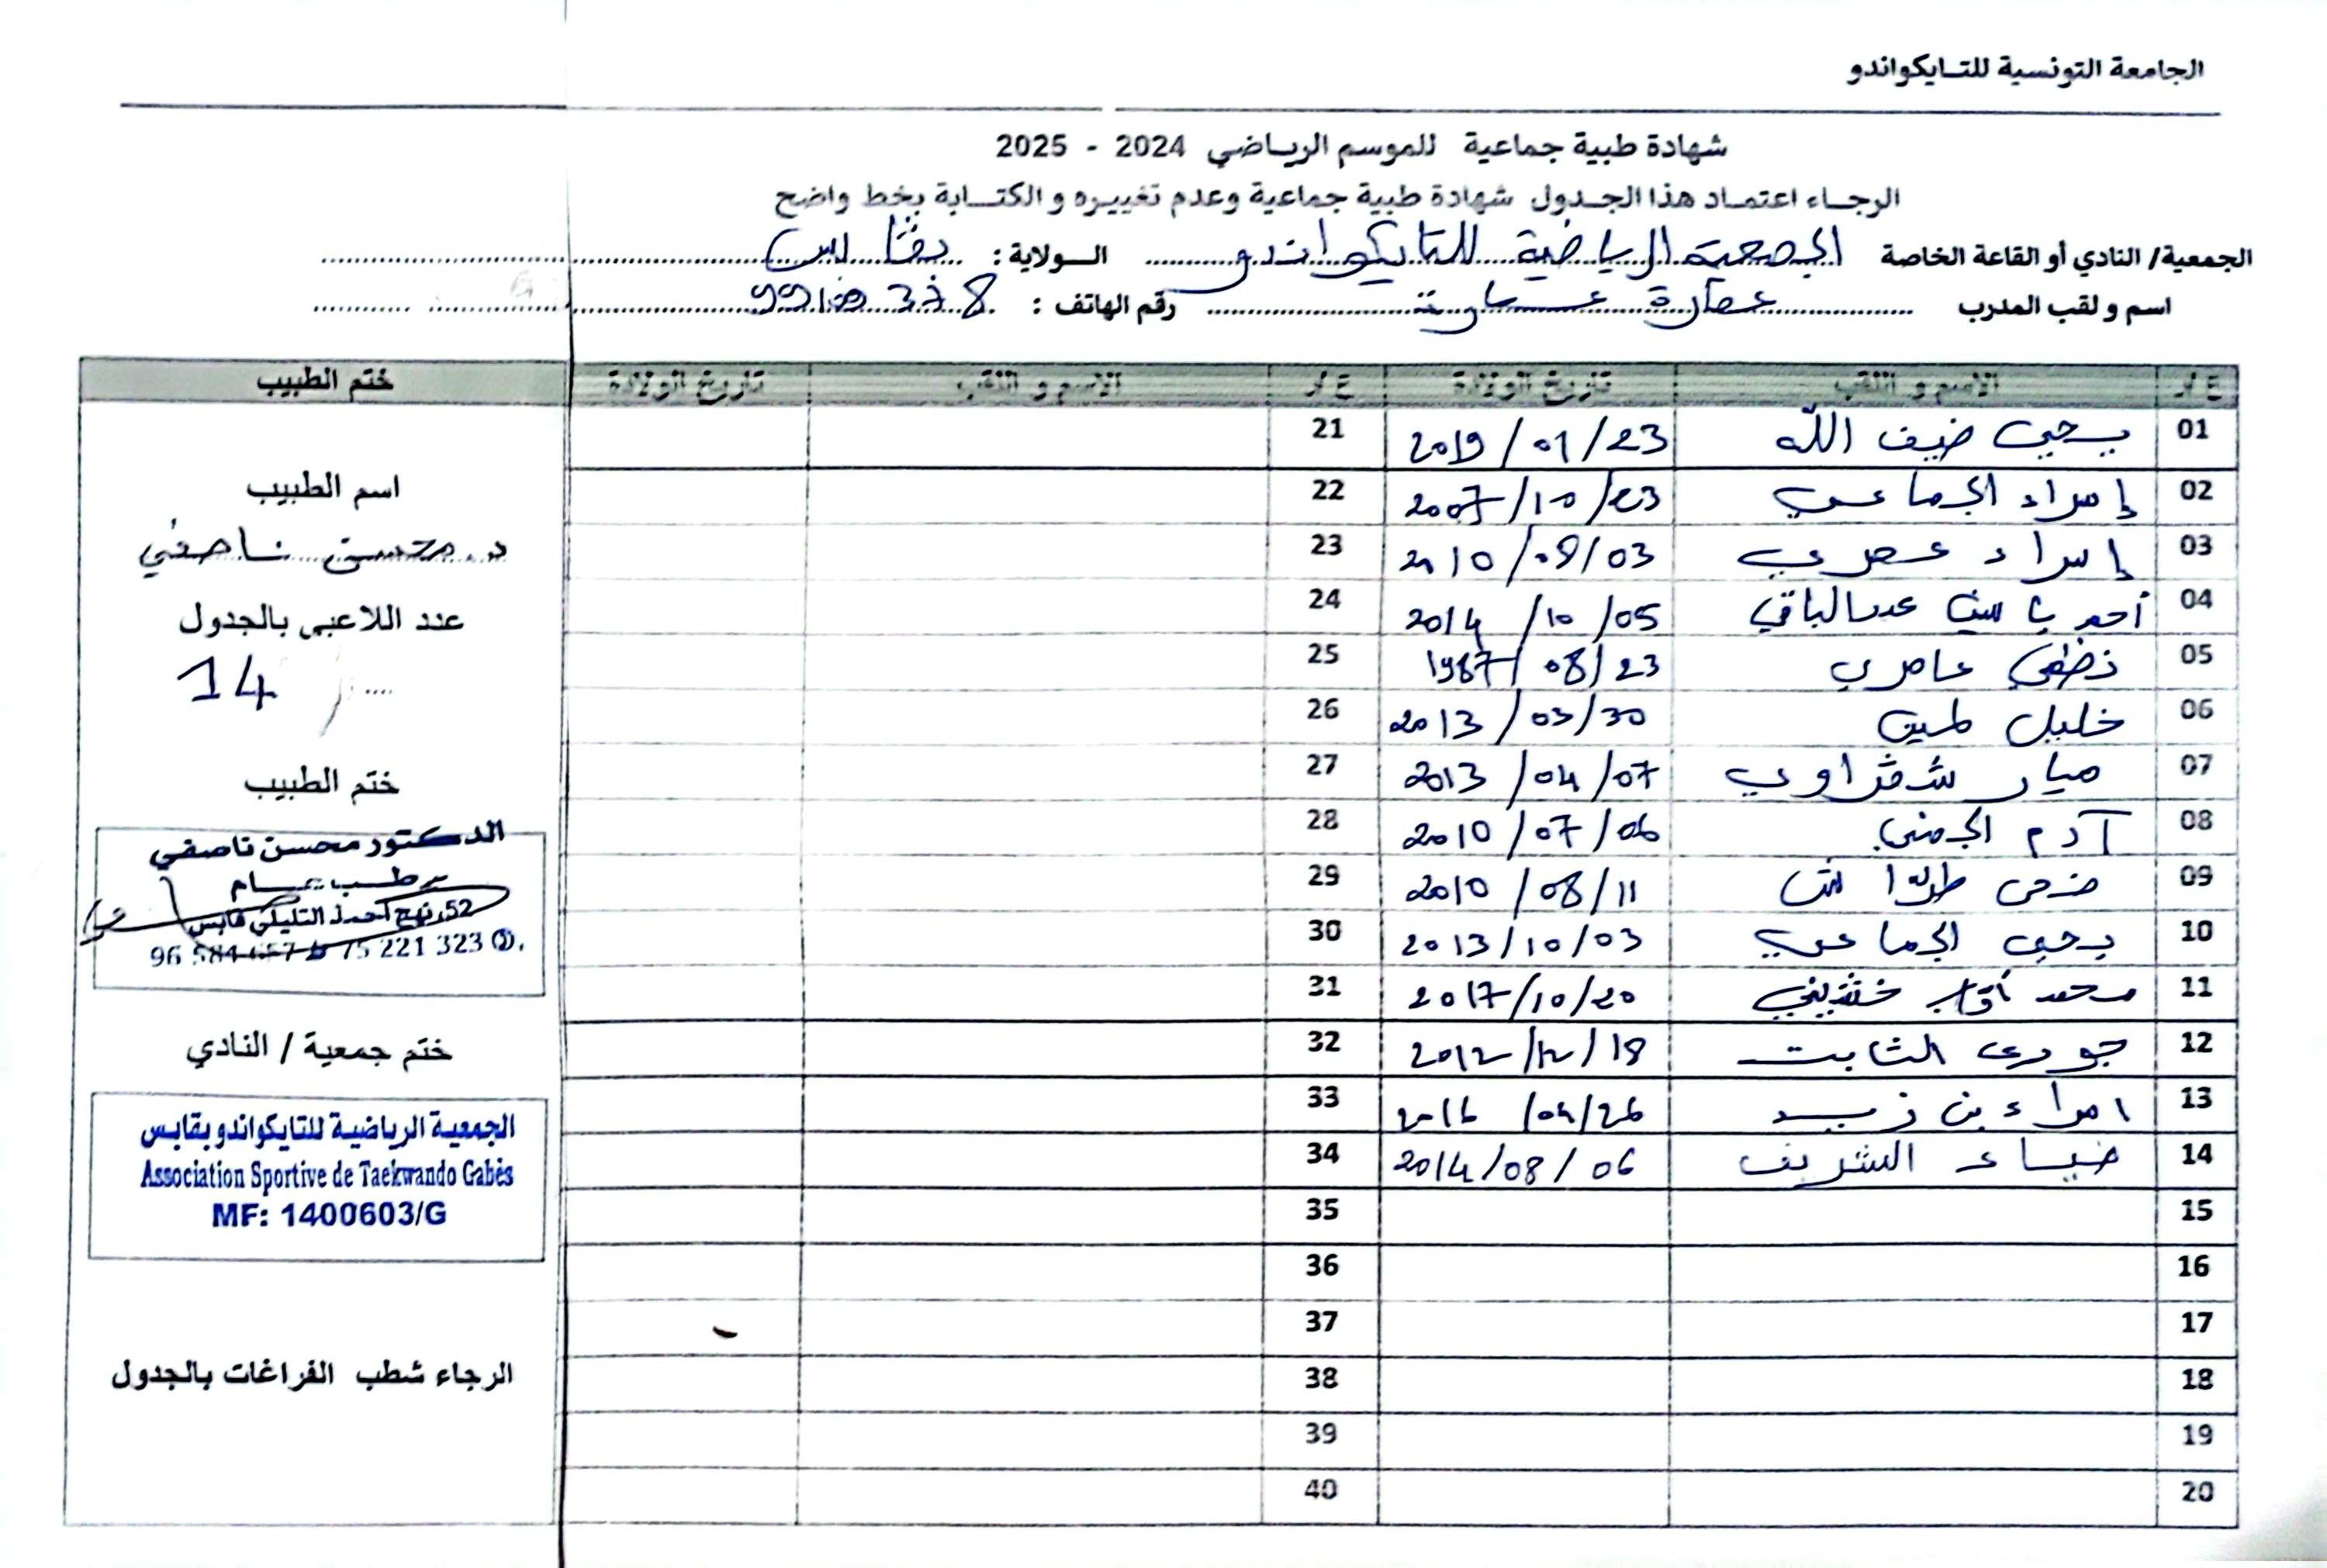 الجامعة التونسية للتـايكواندو
شهادة طبية جماعية للموسم الرياضي 2024 - 2025
الرجـاء اعتمـاد هذا الجـدول شهادة طبية جماعية وعدم تغييـره و الكتـابة بخط واضح
الجمعية/ النادي أو القاعة الخاصة الجمعية الرياضية للتايكواندو السـولاية: بقابس
اسم و لقب المدرب عمارة رقم الهاتف : 378
ع ر الاسم و اللقب تاريخ الولادة ع ر الاسم و اللقب تاريخ الولادة ختم الطبيب
01 يحيى ضيف الله 2019/01/23 21
02 إسراء الجماعي 2007/10/23 22
03 إسراء عمري 2010/08/03 23
04 أحمد ياسين عبد الباقي 2014/10/05 24
05 عامري 1987/08/23 25
06 خليل لمين 2013/03/30 26
07 ميار شڨراوي 2013/04/07 27
08 آدم الجمني 2010/07/06 28
09 ضحى 2010/08/11 29
10 يحيى الجماعي 2013/10/03 30
11 محمد 2017/10/20 31
12 جودى الثابت 2012/12/18 32
13 اسراء بن زيد 2016/04/26 33
14 ضياء الشريف 2014/08/06 34
15 35
16 36
17 37
18 38
19 39
20 40
اسم الطبيب
د. محسن ناصفي
عدد اللاعبى بالجدول
14
ختم الطبيب
الدكتور محسن ناصفي
طـب عـــام
52، نهج أحمد التليلي قابس
75 221 323
ختم جمعية / النادي
الجمعية الرياضية للتايكواندو بقابس
Association Sportive de Taekwando Gabès
MF: 1400603/G
الرجاء شطب الفراغات بالجدول